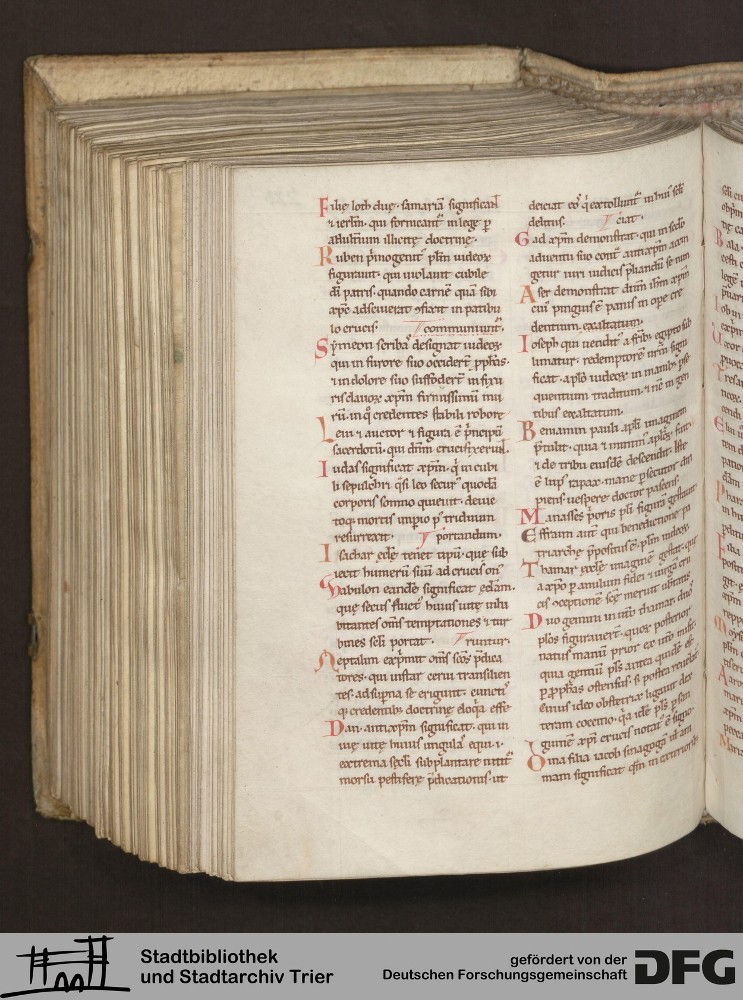 Filię loth duę. samariā significant
⁊ ierlm̄. qui fornicant̄ in lege p
adult̄ium illicitę doctrinę.
Ruben p̄mogenit᷒ plm̄ iudeoꝝ
figurauit. qui uiolauit cubile
dī patris. quando carnē quā sibi
xp̄c adsciuerat ꝯfixit in patibu
lo crucis. communiunt᷒.
Sẏmeon scribas designat iudeoꝝ
qui in furore suo occidert̄ ꝓphas.
⁊ in dolore suo suffodert̄ in fixu
ris clauoꝝ xp̄m firmissimū mu
rū. in q̊ credentes stabili robore
Leui ⁊ auctor ⁊ figura ē p̄ncipū
sacerdotū. qui dn̄m crucifixerunt.
Iudas significat xp̄m. q̇ in cubi
li sepulchri q̄si leo secur᷒ quodā
corporis somno quieuit. deuic
toq; mortis imꝑio p᷒ triduum
resurrexit. portandum.
Isachar ęcłę tenet tipū. que sub
iecit humerū suū ad crucis on᷒
Zabulon eandē significat ęcłam.
quę secus fluct᷒ huius uitę inha
bitantes om̄s temptationes ⁊ tur
bines sc̄li portat. runtur.
Neptalim exp̄mit om̄s sc̄os p̄dica
tores. qui instar cerui transilien
tes. ad supna se erigunt. cuncti
q; credentib; doctrinę eloq̇a effe
Dan. antixp̄m significat. qui in
uię uitę huius ungulas equi. ⁊
extrema sc̄li subplantare nitit᷒
morsu pestiferę p̄dicationis ut
deiciat eos q̇ extollunt᷒ in hui᷒ sc̄li
delitiis. ciat.
Gad xp̄m demonstrat. qui in sc̄do
aduentu suo cont̄ antixp̄m accin
getur uiri iudicis p̄liandū se nun
Aser demonstrat dn̄m ihm̄ xp̄m
cui᷒ pinguis ē panis in ore cre
dentium. exaltatum.
Ioseph qui uendit᷒ a fr̄ib; egypto sub
limatur. redemptorē nr̄m signi
ficat. a pp̄lo iudeoꝝ in manib; pse
quentium traditum. ⁊ nc̄ in gen
tibus exaltatum.
Beniamin pauli apłi imaginem
p̄tulit. quia ⁊ minim᷒ apłoꝝ fuit.
⁊ de tribu eiusdē descendit. Iste
ē lup᷒ rapax. mane psecutor diri
piens. uespere doctor pascens.
Manasses p̄oris pp̄li figurā gestauit
Effraim aut̄ qui benedictione pa
triarchę p̄positus ē. plm̄ iudeoꝝ.
Thamar ęcclę imaginē gestat. que
a xp̄o p anulum fidei ⁊ uirgā cru
cis ꝯceptionē sc̄ę meruit ubtatis
Duo gemini in utō thamar. duos
plōs figurauert̄. quoꝝ posterior
natus manū prior ex utō misit.
quia gentiū pl̄s antea quidē est
p ꝓphas ostensus. s; postea reuelat᷒
Cuius ideo obstetrix ligauit dex
teram coccino. qa idē pl̄s p san
guinē xp̄i crucis notat᷒ ē signo.
Dina filia iacob sinagogā ul̄ ani
mam significat q̄m in exteriorib;
Stadtbibliothek
und Stadtarchiv Trier
gefördert von der
Deutschen Forschungsgemeinschaft
DFG